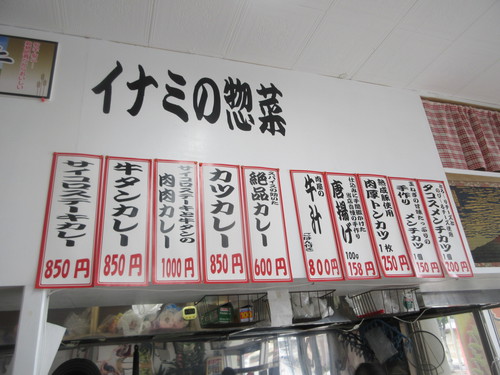 イナミの惣菜
サイコロステーキカレー
850円
牛タンカレー
850円
サイコロステーキと牛タンの
肉肉カレー
1000円
カツカレー
850円
スパイスの効いた
絶品カレー
600円
肉屋の
牛汁
ごはん付
800円
仕込みに手間暇かけた
唐揚げ
100g
158円
熟成豚使用
肉厚トンカツ
1枚
250円
手作り
メンチカツ
1個
150円
タコスメンチカツ
1個
200円